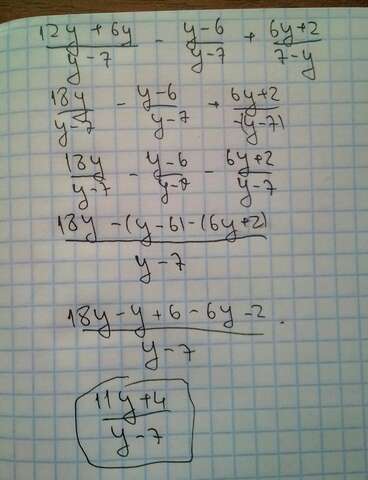 (12y + 6y)/(y - 7) - (y - 6)/(y - 7) + (6y + 2)/(7 - y)
18y/(y - 7) - (y - 6)/(y - 7) + (6y + 2)/(-(y - 7))
18y/(y - 7) - (y - 6)/(y - 7) - (6y + 2)/(y - 7)
(18y - (y - 6) - (6y + 2))/(y - 7)
(18y - y + 6 - 6y - 2)/(y - 7)
(11y + 4)/(y - 7)